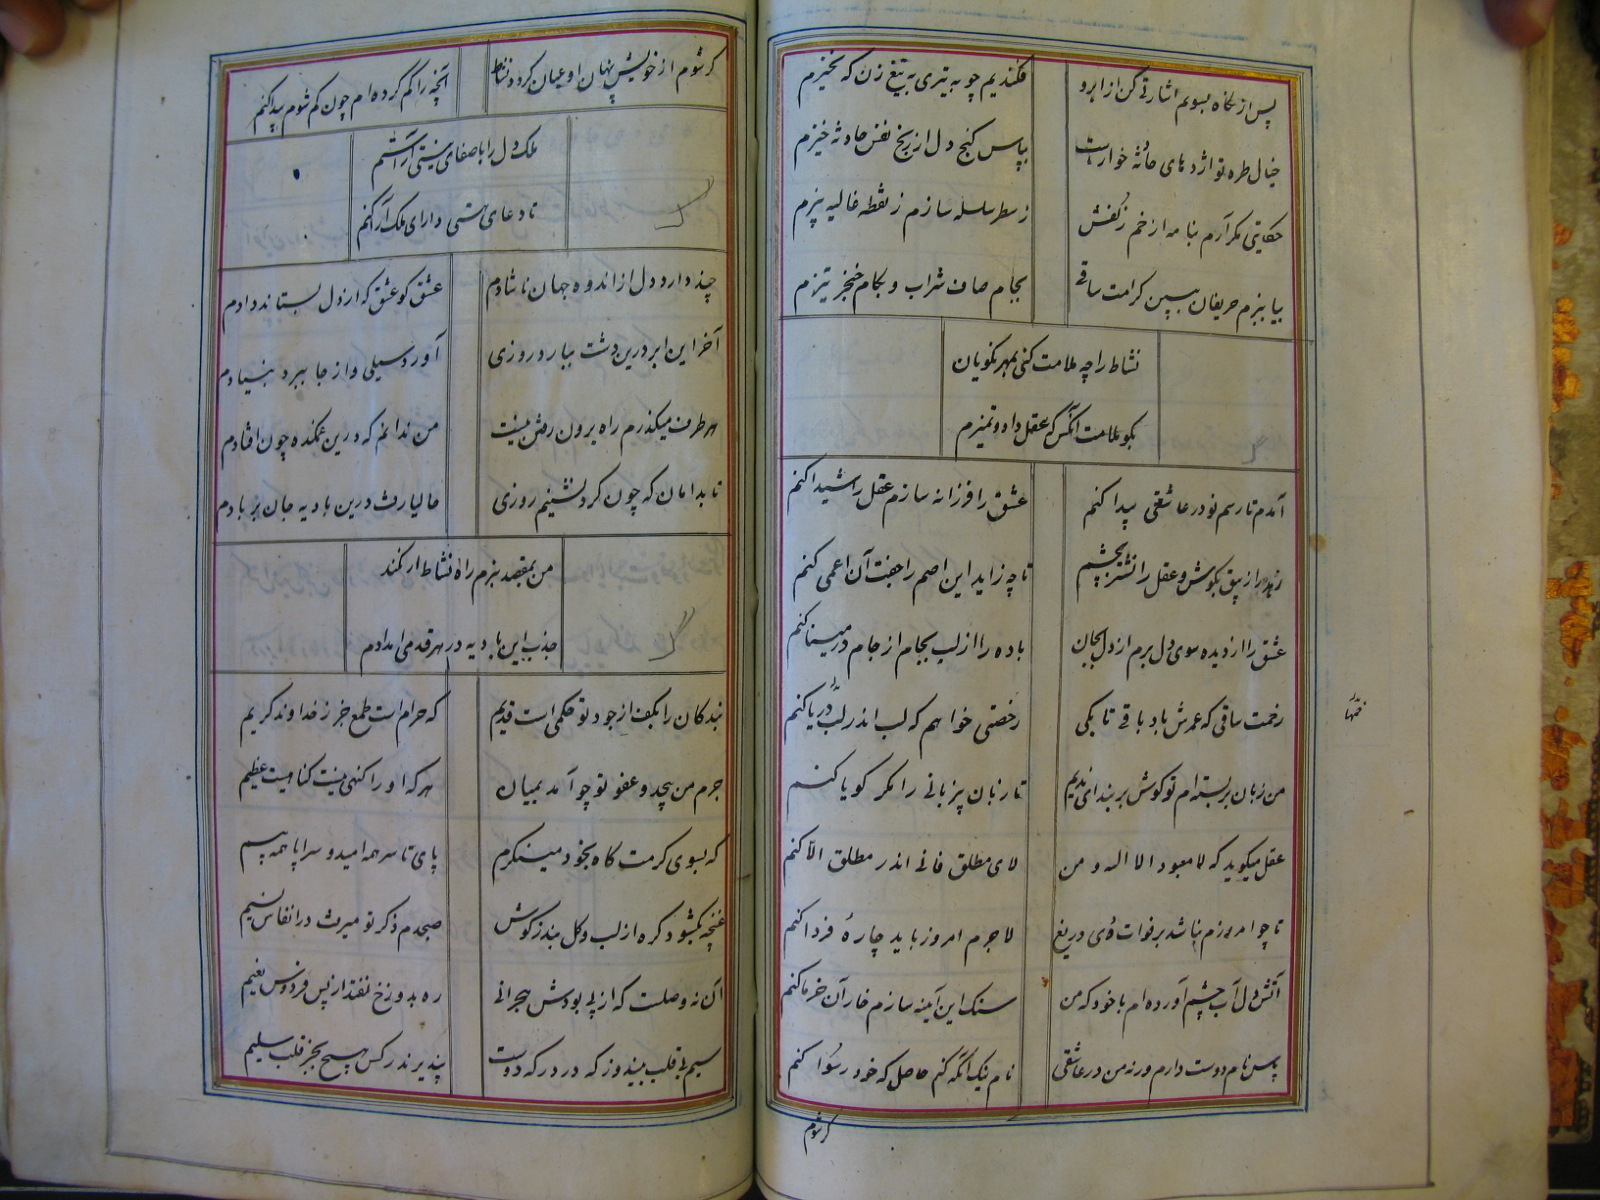 پس از نگاه بسویم اشارتی کن از ابرو فکندیم چو به تیری به تیغ زن که نخیزم
خیال طره تو اژدهای حادثه خوارست بپاس گنج دل از رنج نفس حادثه خیزم
حکایتی مگر آرم بنامه از خم زلفش ز سطر سلسله سازم ز نقطه غالیه بیزم
بیا ببزم حریفان ببین کرامت ساقی بجام صاف شراب و بکام خنجر تیزم
نشاط را چه ملامت کنی بمهر نکویان
بگو ملامت آنکس که عقل داد و تمیزم
آمدم تا رسم نو در عاشقی پیدا کنم عشق را فرزانه سازم عقل را شیدا کنم
زهد را زیبق بگوش و عقل را نشتر بچشم تا چه زاید این اصم را جفت آن اعمی کنم
عشق را از دیده سوی دل برم از دل بجان باده را از لب بجام از جام در مینا کنم
رحمت ساقی که عمرش باد باقی تا بکی رخصتی خواهم که لب اندر لب دریا کنم
من زبان بربسته‌ام تو گوش بربند ای ندیم تا زبان بیزبانی را مگر گویا کنم
عقل میگوید که لا معبود الا اله و من لای مطلق فانی اندر مطلق الا کنم
تا چو امروزم نباشد بر فوات دی دریغ لاجرم امروز باید چارهٔ فردا کنم
آتش دل آب چشم آورده‌ام با خود که من سنک این آیینه سازم خار آن خرما کنم
پاس نام دوست دارم ورنه من در عاشقی نام نیک آنگه کنم حاصل که خود رسوا کنم
گر شوم
گر شوم از خویش پنهان او عیان گردد نشاط آنچه را گم کرده‌ام چون گم شوم پیدا کنم
ملک دل را با صفای نیستی آراستم
تا دعای هستی دارای ملک آرا کنم
چند دارد دل از اندوه جهان ناشادم عشق کو عشق که از دل بستاند دادم
آخر این ابر درین دشت ببارد روزی آورد سیلی و از جا ببرد بنیادم
هر طرف میگذرم راه برون رفتن نیست من ندانم که درین غمکده چون افتادم
تا بدامان که چون گرد نشینم روزی حالیا رفت درین بادیه جان بر بادم
من بمقصد نبرم راه نشاط ار نکند
جذب این بادیه در هر قدمی امدادم
بندگان را بکف از جود تو حکمی است قدیم که حرام است طمع جز ز خداوند کریم
جرم من بیحد و عفو تو چو آمد بمیان هر که او را گنهی نیست گناهیست عظیم
گه بسوی کرمت گاه بخود مینگرم پای تا سر همه امید و سراپا همه بیم
غنچه بگشود گره از لب و گل بند ز گوش صبحدم ذکر تو میرفت در انفاس نسیم
آن نه وصلست که از پی بودش هجرانی ره بدوزخ نفتد از پس فردوس نعیم
سیم بی قلب بیندوز که در درگه دوست نپذیرند ز کس هیچ بجز قلب سلیم